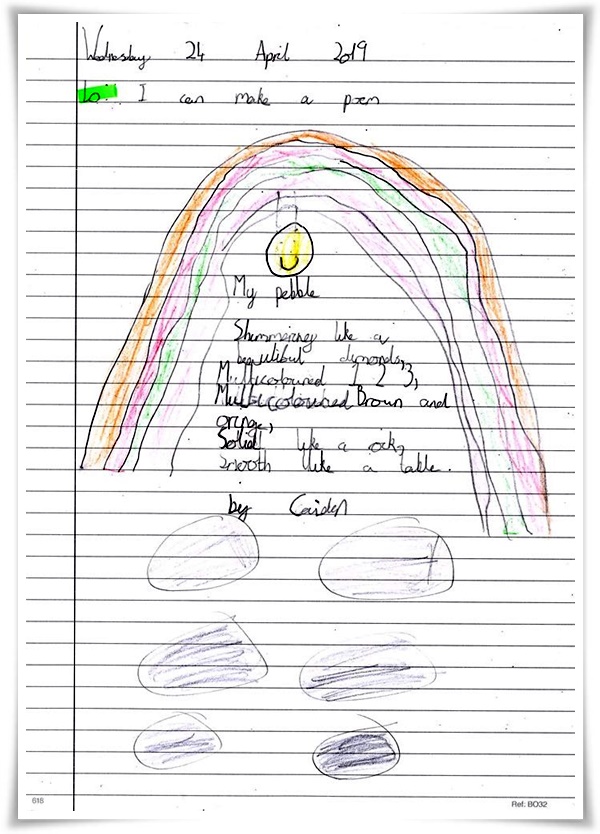 Wednesday 24 April 2019
Lo: I can make a poem
My pebble
Shimmering like a
beautibut dimonds,
Multicoloured 1 2 3,
Multicoloured Broun and
oringe,
Solid like a rock,
Smooth like a table.
by Caiden
618
Ref: BO32